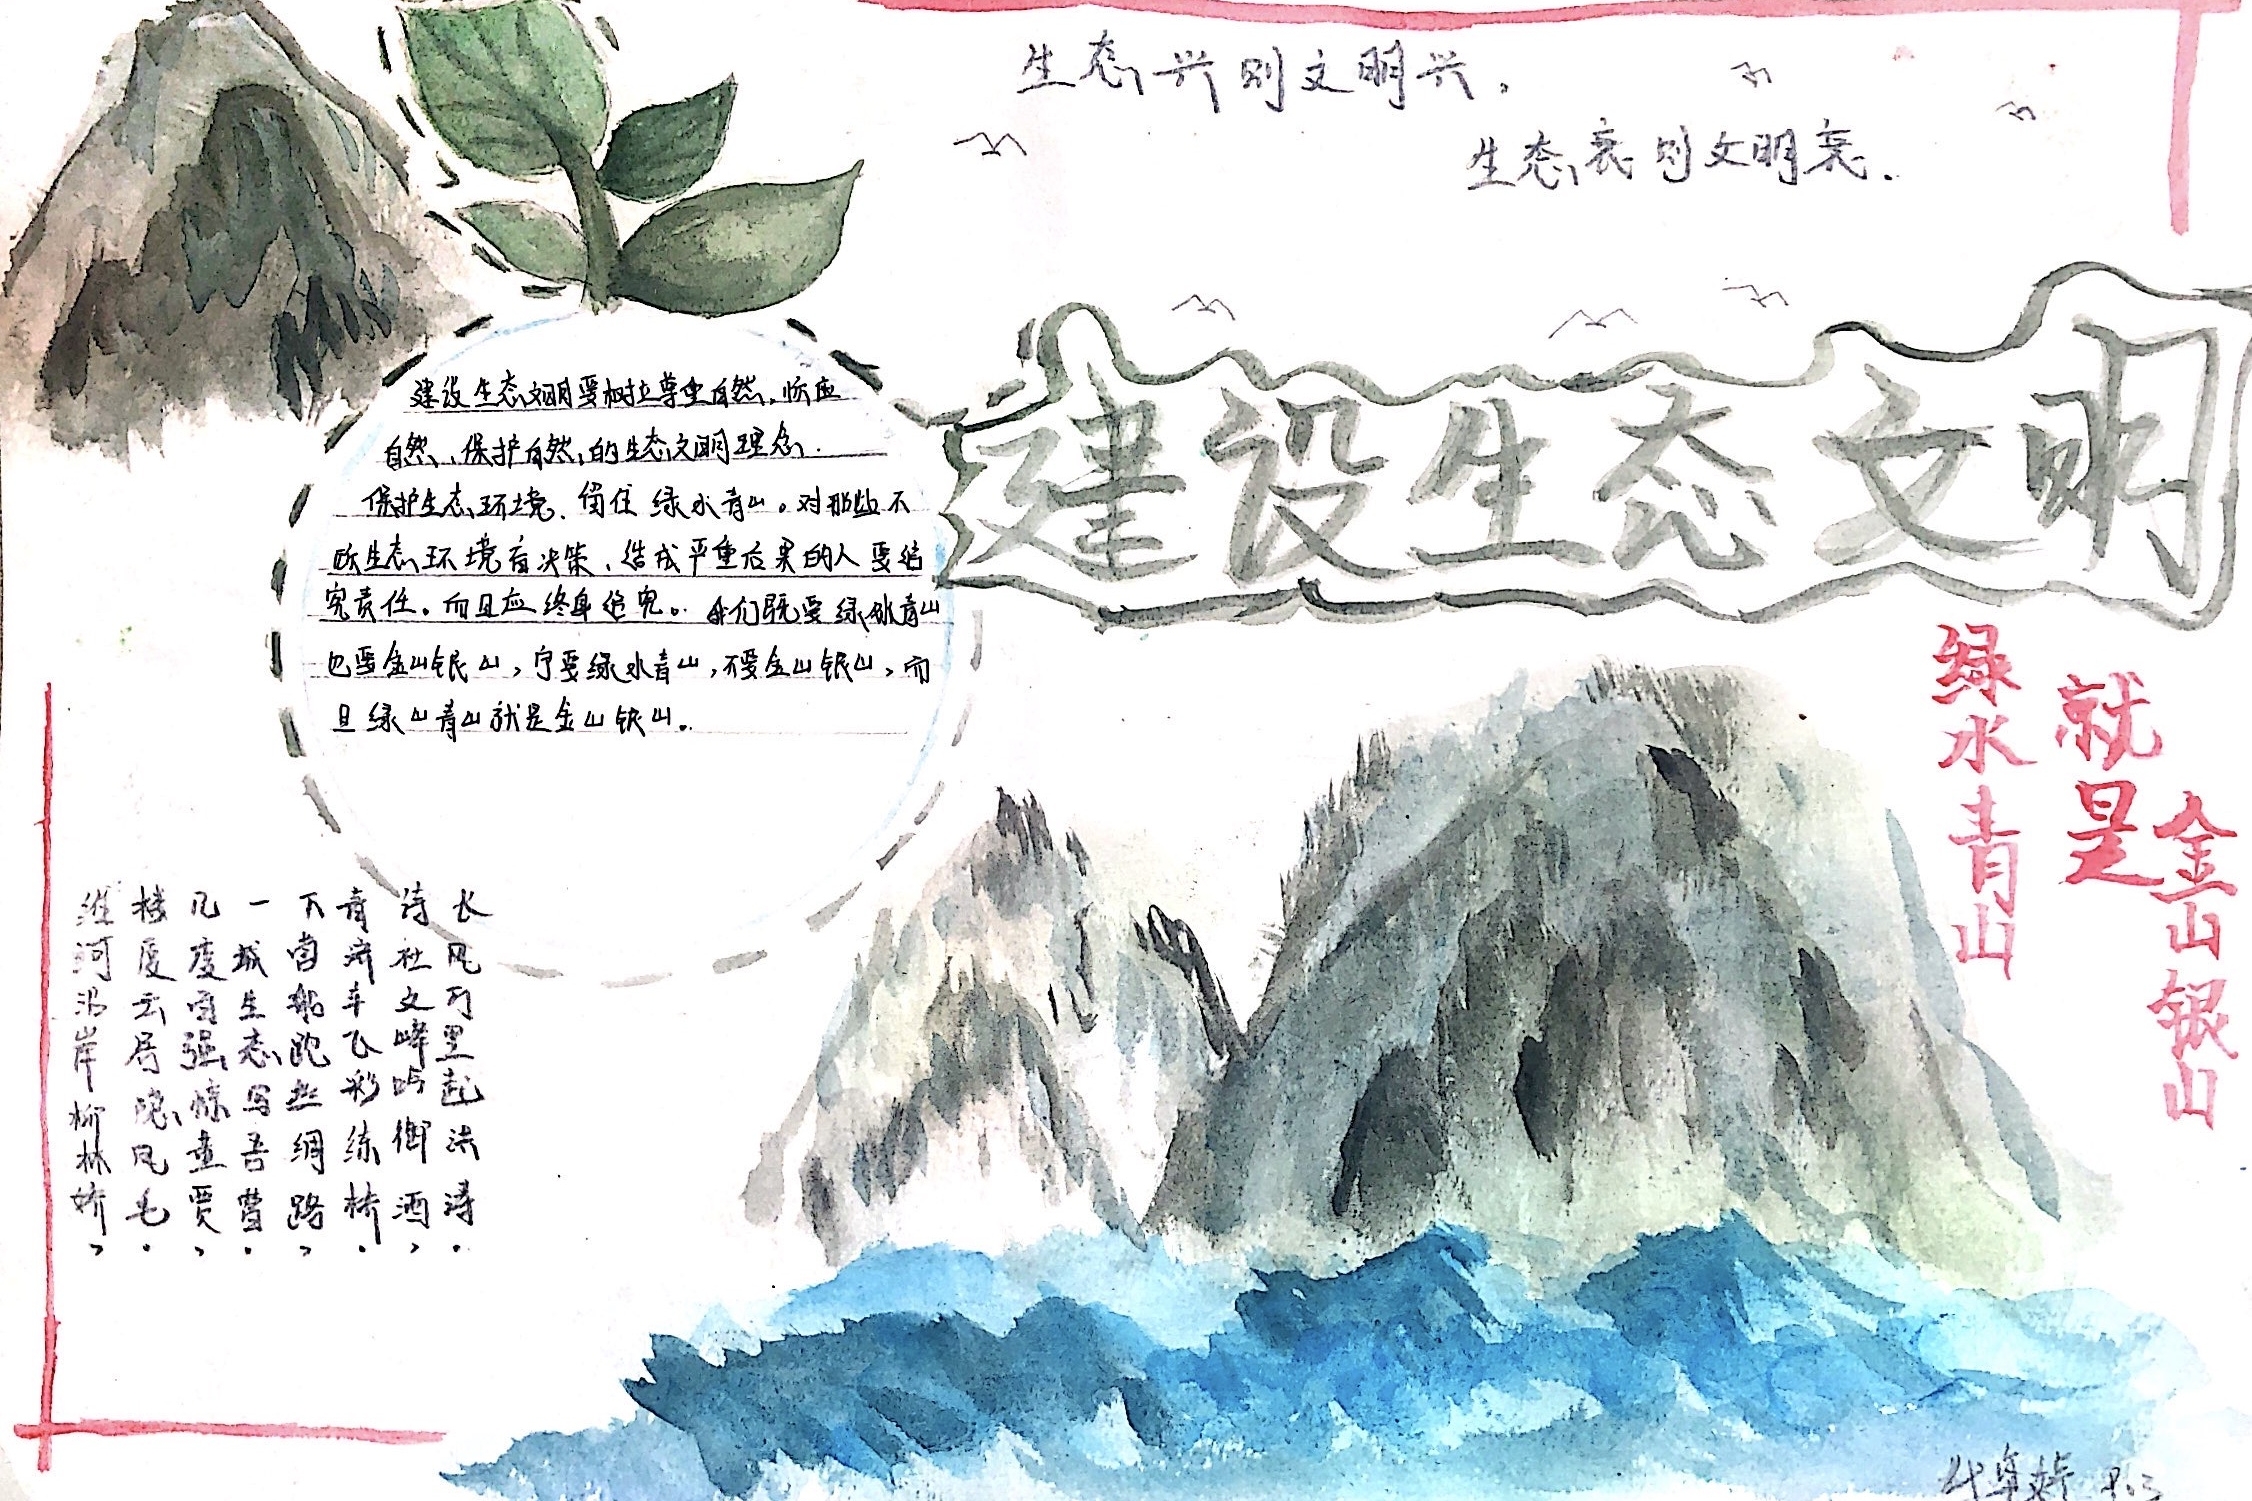 生态兴则文明兴，
生态衰则文明衰．
建设生态文明
绿水青山
就是
金山银山
建设生态文明要树立尊重自然、顺应
自然、保护自然的生态文明理念．
保护生态环境、留住绿水青山。对那些不
顾生态环境盲决策、造成严重后果的人要追
究责任。而且应终身追究。我们既要绿水青山
也要金山银山，宁要绿水青山，不要金山银山，而
且绿山青山就是金山银山。
长风万里起洪涛．
诗社文峰吟御酒，
青济车飞彩练桥．
下官船跑丝绸路，
一城生态写吾曹．
几度雨强惊董贾，
楼厦云居隐凤毛．
潍河沿岸柳林娇，